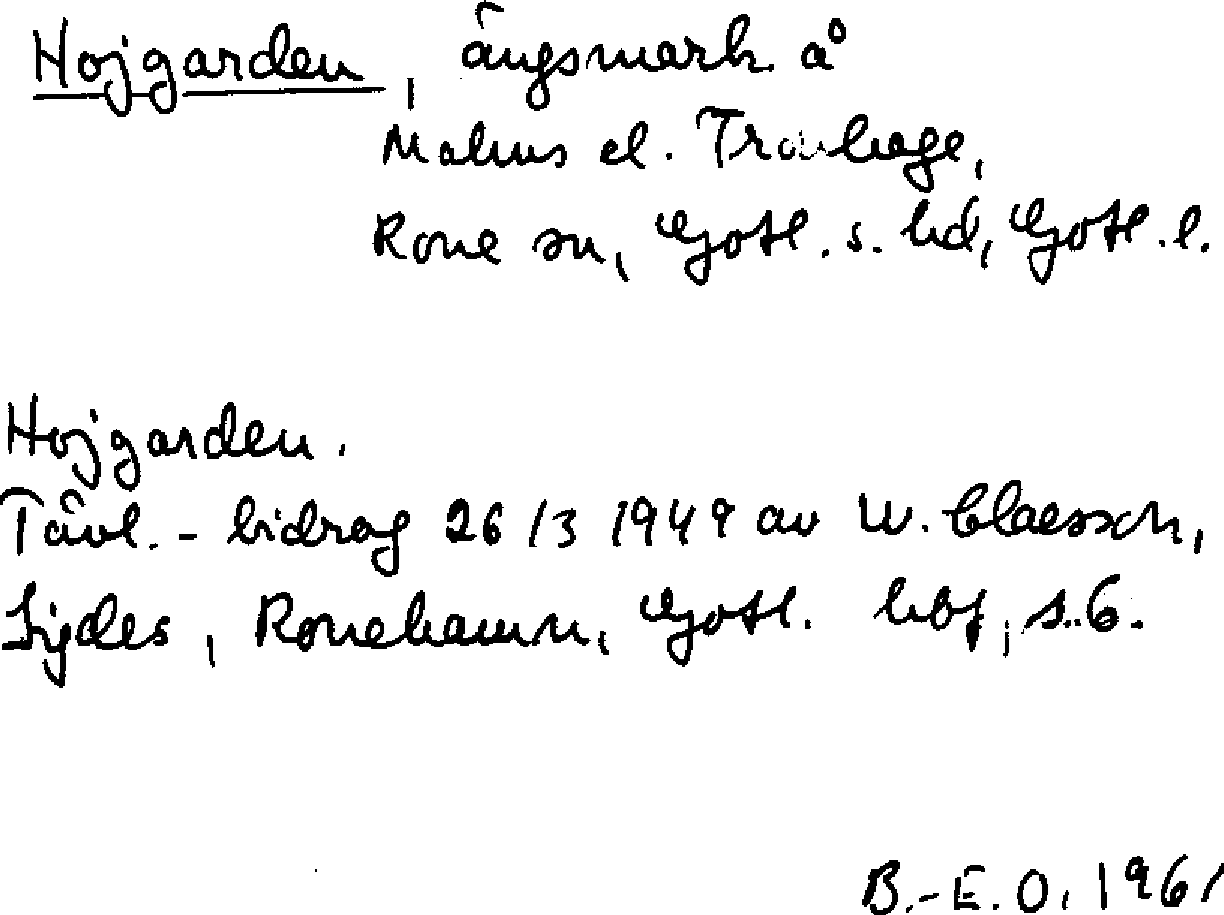 Hojgarden, ängsmark å
Malms el. Tranhage,
Rone sn, Gotl. s. hd, Gotl. l.
Hojgarden.
Tävl.-bidrag 26/3 1949 av W. Claesson,
Sigdes, Ronehamn, Gotl. hbf, s. 6.
B.-E. O. 1961